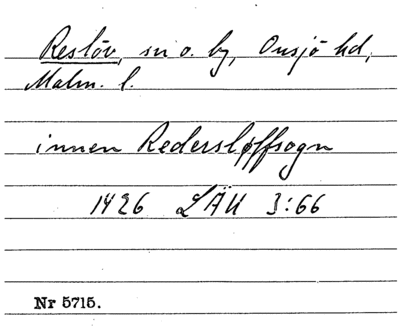 Reslöv, sn o. by, Onsjö hd,
Malm. l.
innen Redersløffsogn
1426 LÄU 3:66
Nr 5715.